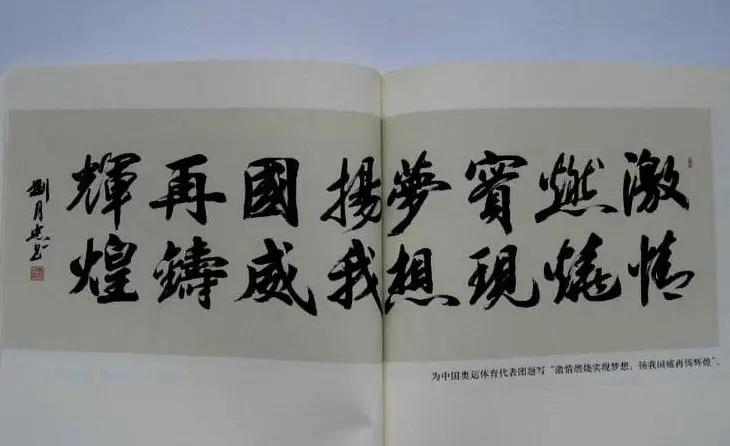 激情
燃燒
實現
夢想
揚我
國威
再鑄
輝煌
劉月忠书
为中国奥运体育代表团题写“激情燃烧实现梦想，扬我国威再铸辉煌”。